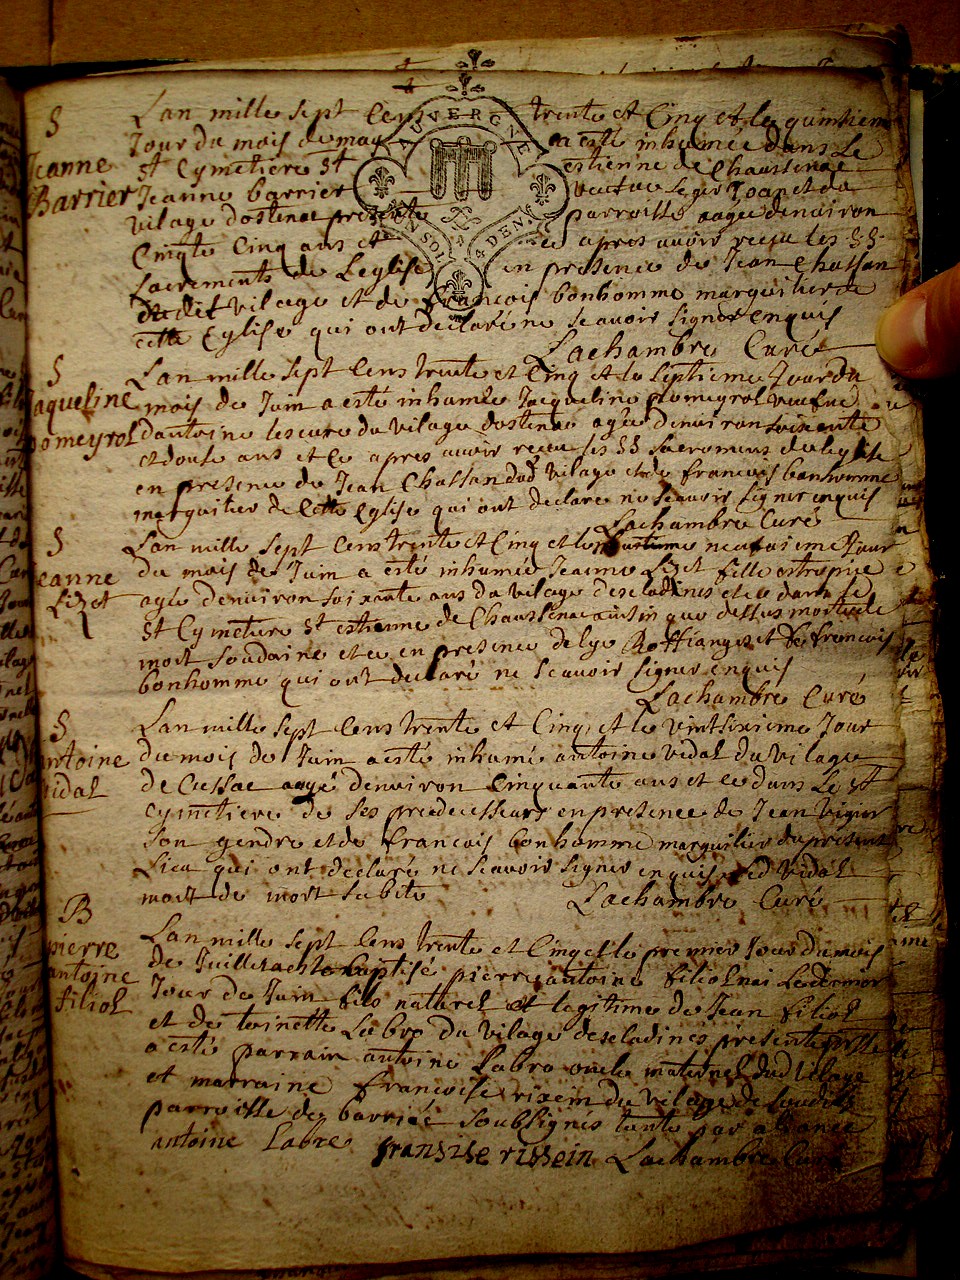 S
Jeanne
Barrier
Lan mille sept Cens trente et Cinq et le quinsiem
Jour du mois de may a esté inhumée dans Le
St Cymetiere St estienne de Chaussenac
Jeanne barrier veufue leger Joanet du
vilage dostenac presente parroisse aagee denuiron
Cinqte Cinq ans et ce apres auoir receu les SS
Sacrements de Leglise en presence de Jean Chassan
dudit vilage et de francois bonhomme marguilier de
cette Eglise qui ont declaré ne scauoir signer enquis
Lachambre Curé
AUVERGNE
UN SOL 4 DEN.
S
Jaqueline
pomeyrol
Lan mille sept Cens trente et Cinq et le septieme Jour du
mois de Juin a esté inhumée Jacqueline pomeyrol veufue
dantoine lescure du vilage dostenac agée denuiron soixente
et douse ans et ce apres auoir receu les SS sacremens de leglise
en presence de Jean Chassan dud vilage et de francois bonhomme
marguilier de Cette eglise qui ont declaré ne scauoir signer enquis
Lachambre Curé
S
Jeanne
Lizet
Lan mille sept Cens trente et Cinq et le neufuieme Jour
du mois de Juin a esté inhumée Jeanne Lizet fille estropiee
agée denuiron soixante ans du vilage deseladines et ce dans le
St Cymetiere St estienne de Chaussenac ainsin que dessus morte de
mort soudaine et ce en presence de et de francois
bonhomme qui ont declaré ne scauoir signer enquis
Lachambre Curé
S
antoine
vidal
Lan mille sept Cens trente et Cinq et le vintsixieme Jour
du mois de Juin a esté inhumé antoine vidal du vilage
de Cussac aagé denuiron Cinquante ans et ce dans Le St
Cymetiere de ses predecesseurs en presence de Jean vigier
son gendre et de francois bonhomme marguilier du present
Lieu qui ont declaré ne scauoir signer enquis led vidal
mort de mort subite Lachambre Curé
B
pierre
antoine
filiol
Lan mille sept Cens trente et Cinq et le premier Jour du mois
de Juillet a esté baptisé pierre antoine filiol nai Le dernier
Jour de Juin fils naturel et legitime de Jean filiol
et de toinette Labro du vilage deseladines presente psse
a esté parrain antoine Labro oncle maternel dud vilage
et marraine francoise rixein du vilage de
parroisse de barriac soubsignés
antoine Labre fransise rissein Lachambre Curé